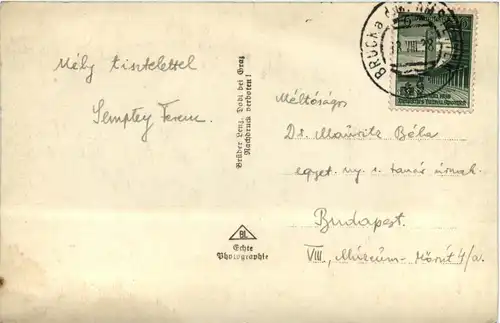 Mély tisztelettel
Szentpéty Ferenc.
Brüder Lenz, Dobl bei Graz
Nachdruck verboten!
BL
Echte
Photographie
BRUCK a. d.
VIII 38
Méltóságos
Dr. Mauritz Béla
egyet. ny. r. tanár úrnak.
Budapest.
VIII, Múzeum-Körút 4/a.